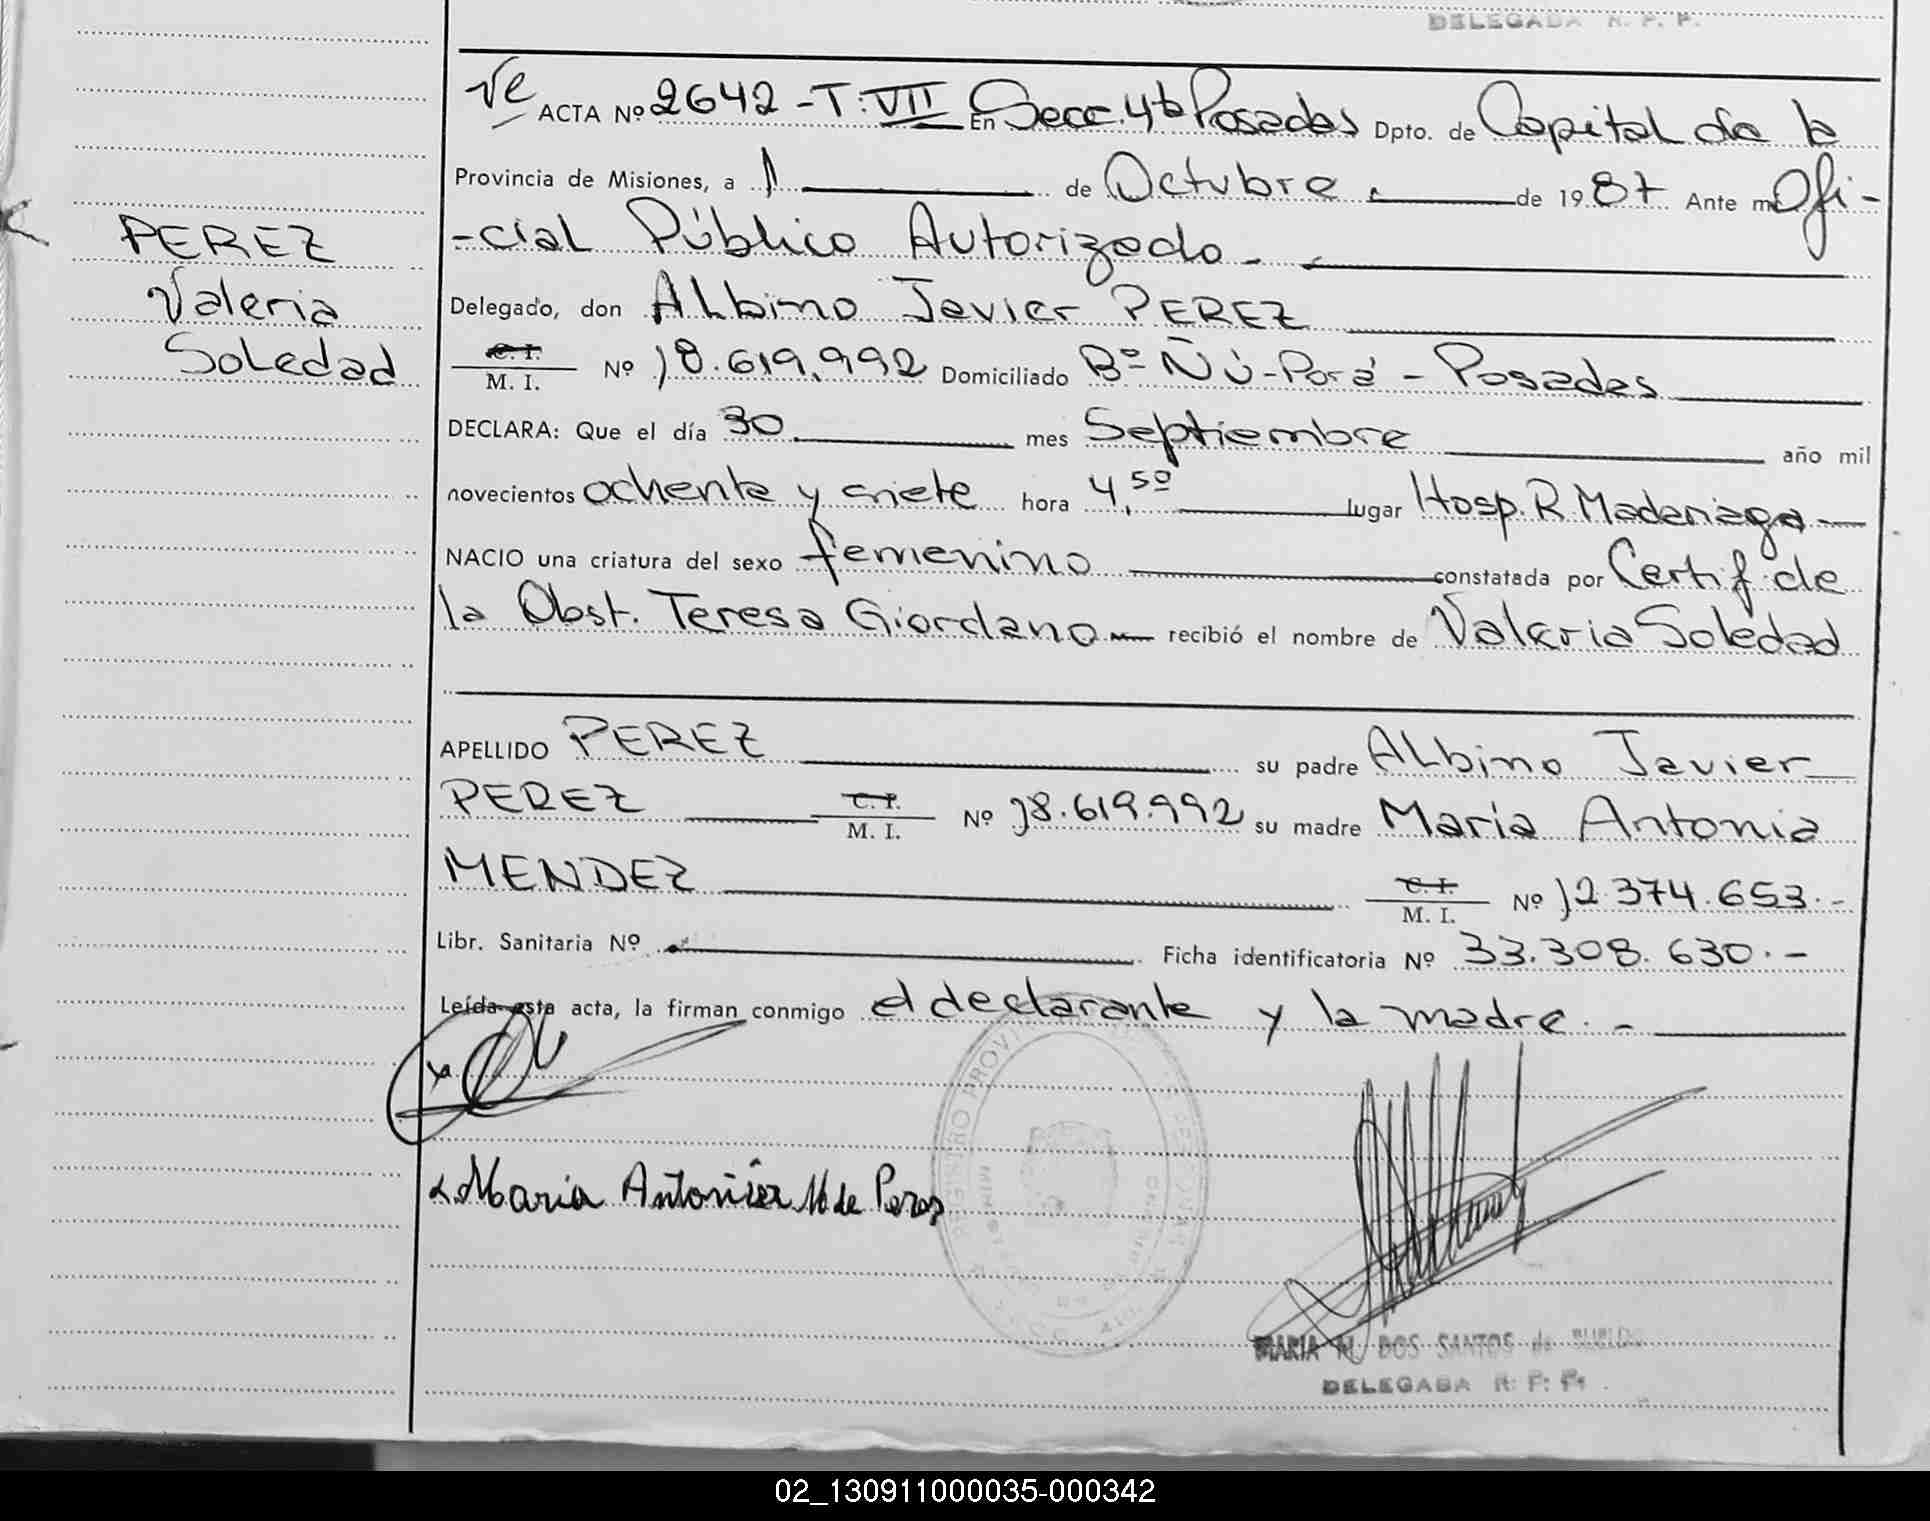 DELEGADA R. P. P.
Ve ACTA Nº 2642 - T: VII En Secc. 4ta Posadas Dpto. de Capital de la
Provincia de Misiones, a 1 de Octubre de 1987 Ante mi Ofi-
-cial Público Autorizado -
PEREZ
Valeria
Soledad
Delegado, don Albino Javier PEREZ
C. I.
M. I. Nº 18.619.992 Domiciliado Bº Ñú-Porá - Posadas
DECLARA: Que el día 30 mes Septiembre año mil
novecientos ochenta y siete hora 4,50 lugar Hosp. R. Madariaga
NACIO una criatura del sexo femenino constatada por Certif. de
la Obst. Teresa Giordano recibió el nombre de Valeria Soledad
APELLIDO PEREZ su padre Albino Javier
PEREZ C. I. M. I. Nº 18.619.992 su madre Maria Antonia
MENDEZ C. I. M. I. Nº 12.374.653.-
Libr. Sanitaria Nº Ficha identificatoria Nº 33.308.630.-
Leída esta acta, la firman conmigo el declarante y la madre. -
Maria Antonia M de Perez
MARIA N. DOS SANTOS de
DELEGADA R. P. P.
02_130911000035-000342